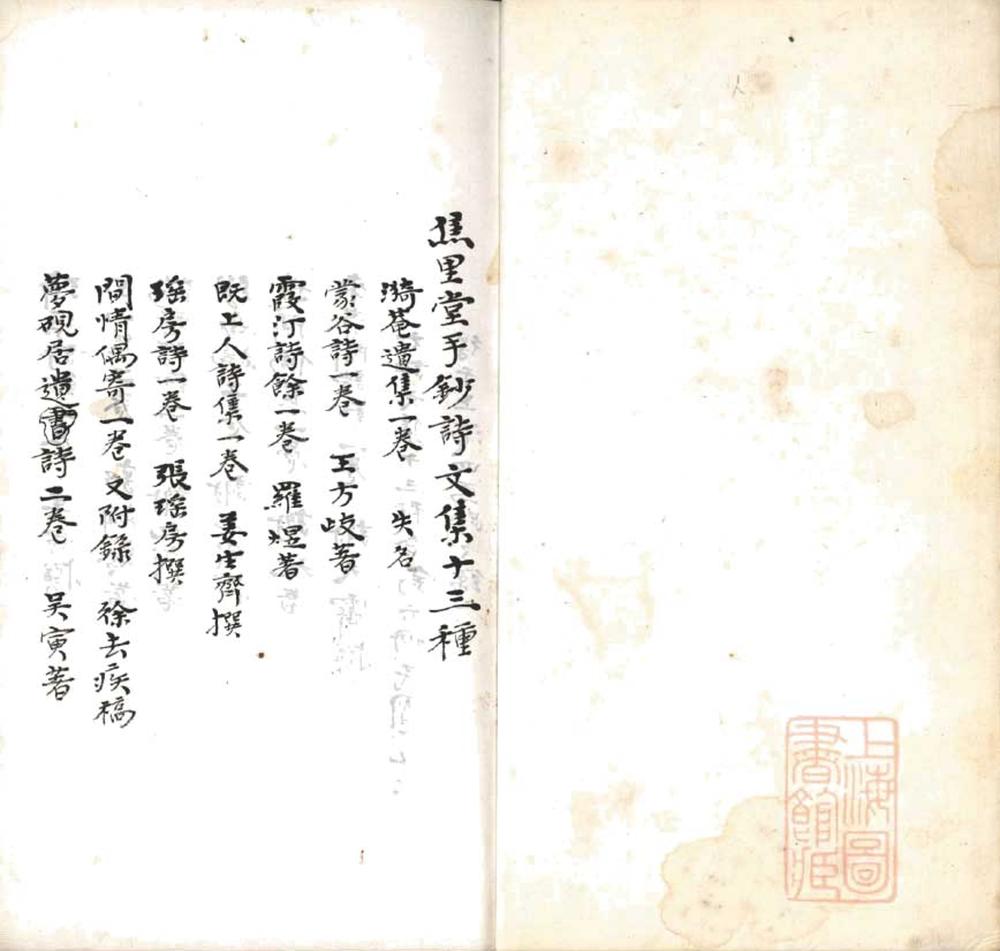 上海圖
書館藏
焦里堂手鈔詩文集十三種
漪菴遺集一卷 失名
蒙谷詩一卷 王方歧著
霞汀詩餘一卷 羅煜著
既上人詩集一卷 姜生齊撰
瑶房詩一卷 張瑶房撰
閒情偶寄一卷又附錄 徐去疾稿
夢硯居遺書詩二卷 吴寅著